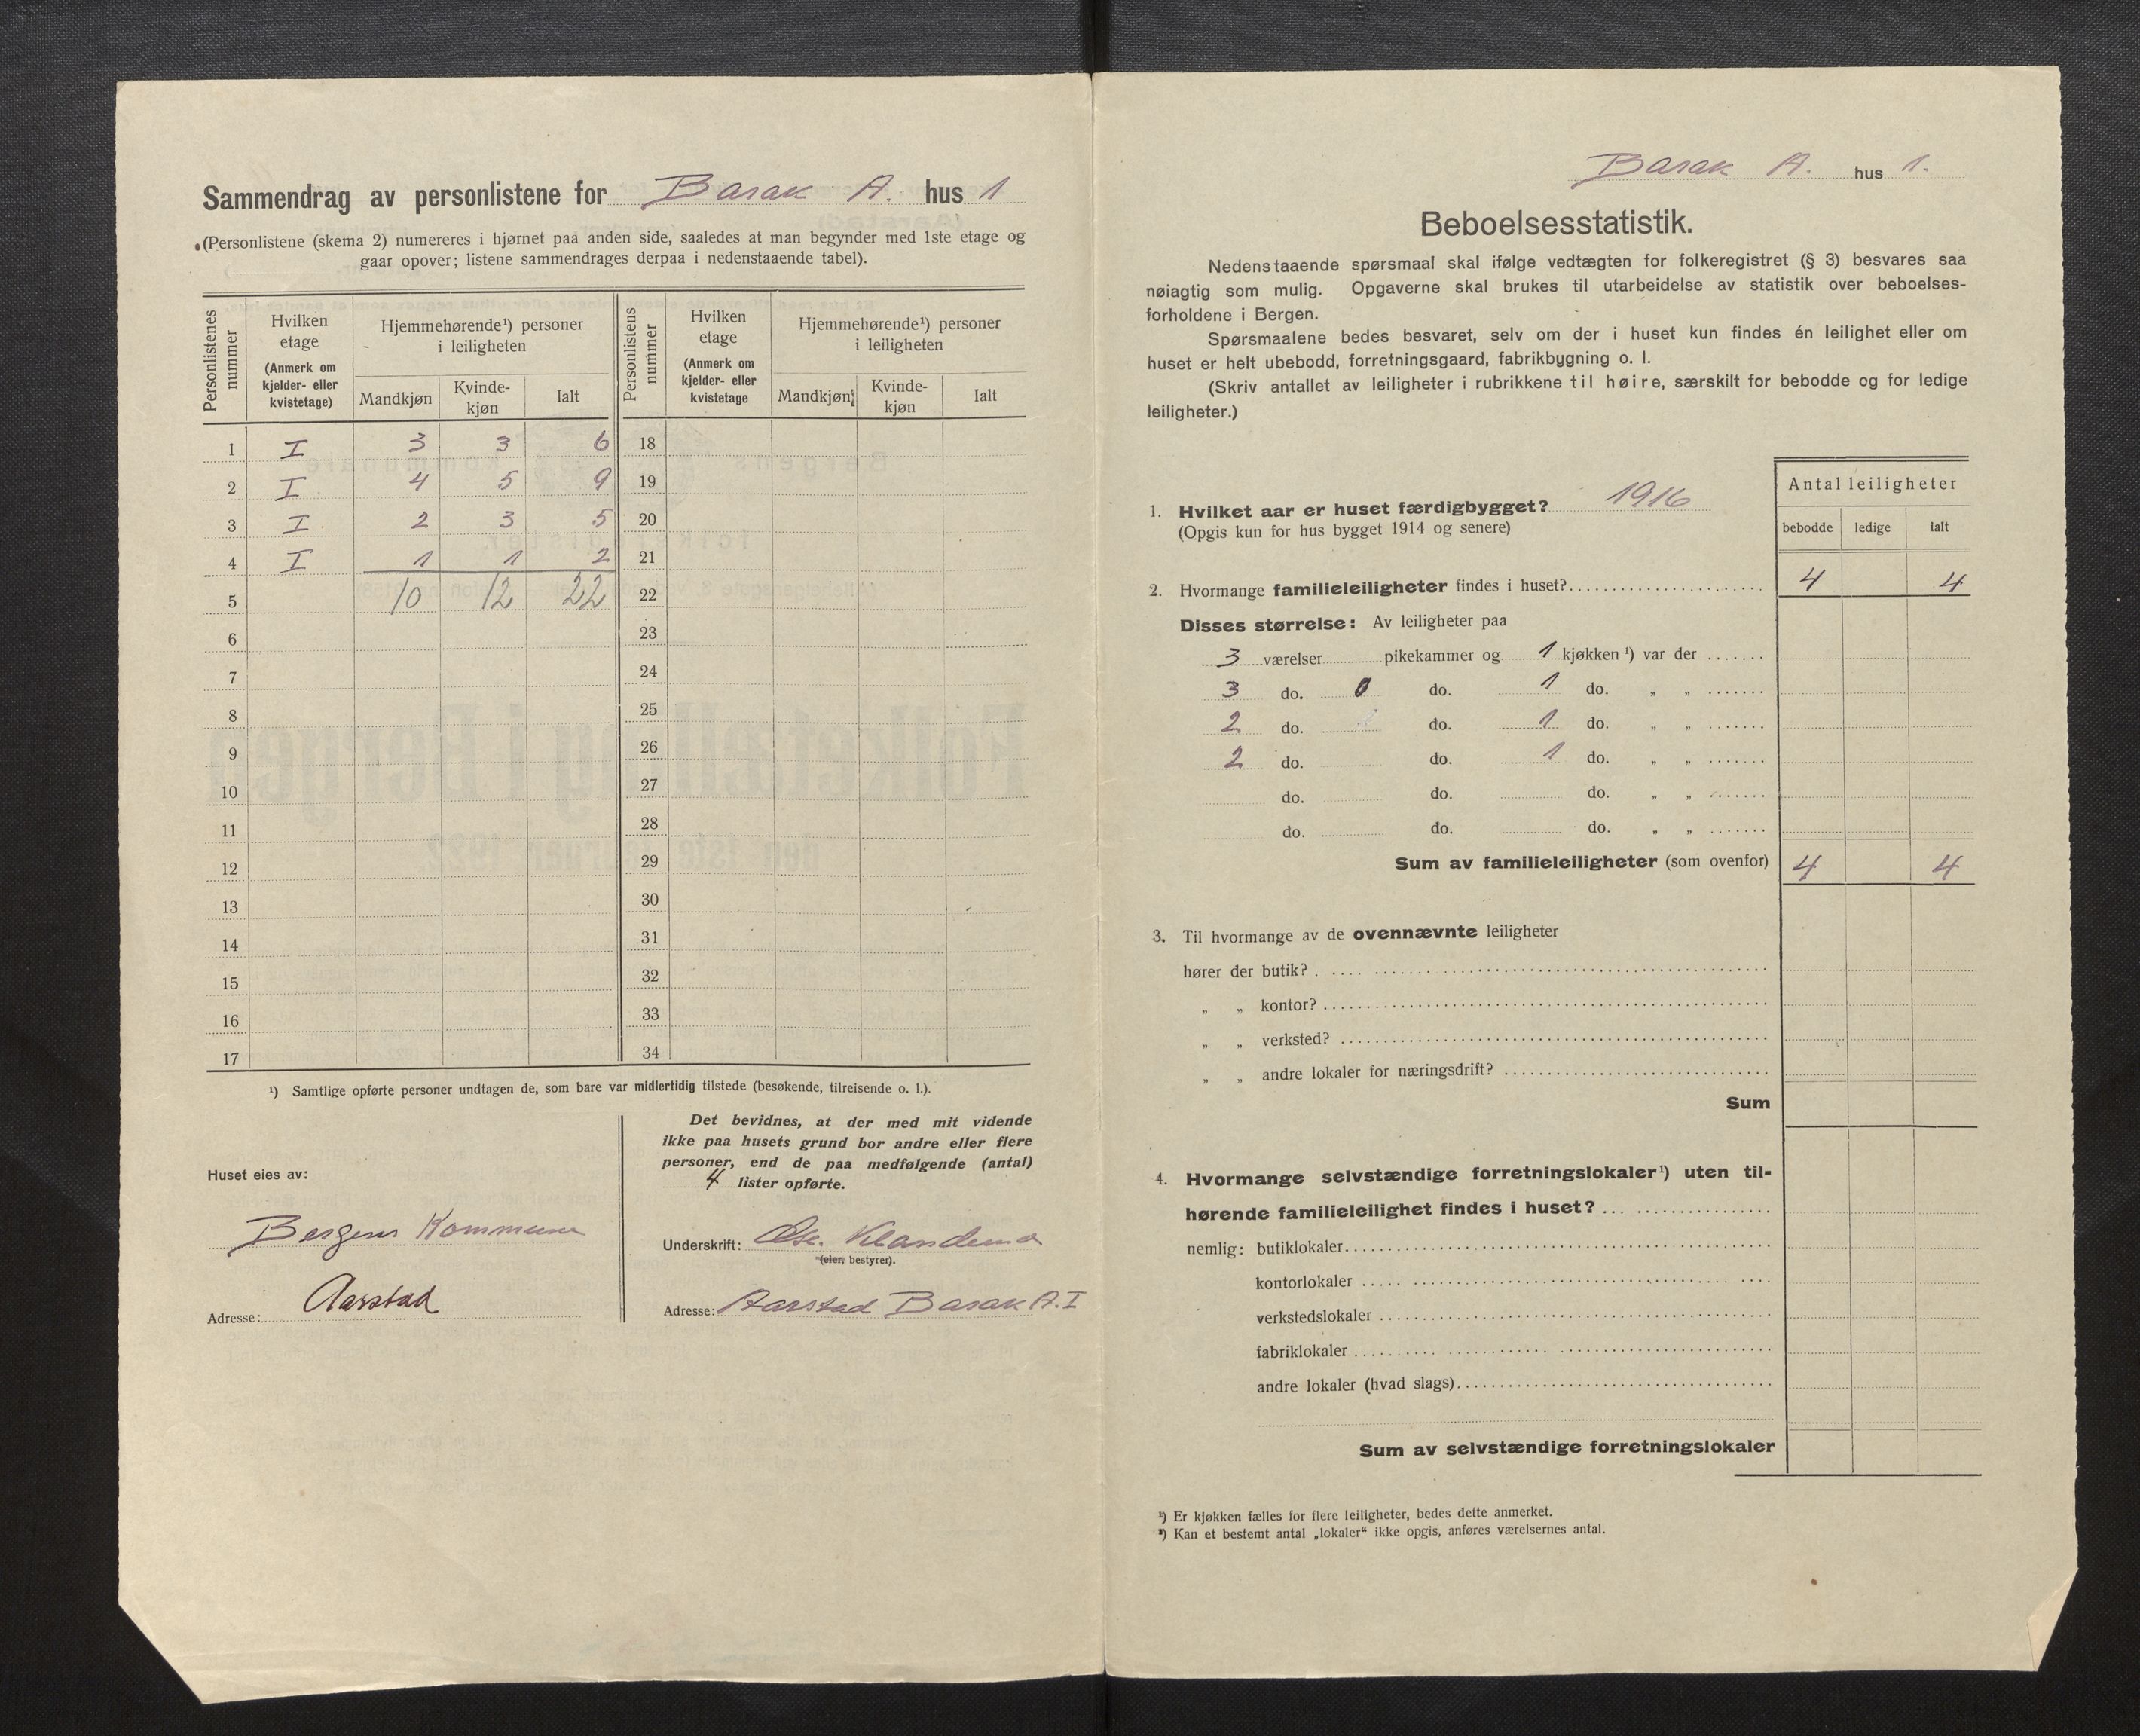 Sammendrag av personlistene for Barak A. hus 1
(Personlistene (skema 2) numereres i hjørnet paa anden side, saaledes at man begynder med 1ste etage og
gaar opover; listene sammendrages derpaa i nedenstaaende tabel).
Personlistenes nummer | Hvilken etage (Anmerk om kjelder- eller kvistetage) | Hjemmehørende¹) personer i leiligheten | Personlistens nummer | Hvilken etage (Anmerk om kjelder- eller kvistetage | Hjemmehørende¹) personer i leiligheten
Mandkjøn | Kvinde-kjøn | Ialt | Mandkjøn | Kvinde-kjøn | Ialt
1 I 3 3 6 18
2 I 4 5 9 19
3 I 2 3 5 20
4 I 1 1 2 21
5 10 12 22 22
6 23
7 24
8 25
9 26
10 27
11 28
12 29
13 30
14 31
15 32
16 33
17 34
¹) Samtlige opførte personer undtagen de, som bare var midlertidig tilstede (besøkende, tilreisende o. l.).
Huset eies av:
Bergens Kommune
Adresse: Aarstad
Det bevidnes, at der med mit vidende
ikke paa husets grund bor andre eller flere
personer, end de paa medfølgende (antal)
4 lister opførte.
Underskrift:
(eier, bestyrer).
Adresse: Aarstad Barak A. I
Barak A. hus 1.
Beboelsesstatistik.
Nedenstaaende spørsmaal skal ifølge vedtægten for folkeregistret (§ 3) besvares saa
nøiagtig som mulig. Opgaverne skal brukes til utarbeidelse av statistik over beboelses-
forholdene i Bergen.
Spørsmaalene bedes besvaret, selv om der i huset kun findes én leilighet eller om
huset er helt ubebodd, forretningsgaard, fabrikbygning o. l.
(Skriv antallet av leiligheter i rubrikkene til høire, særskilt for bebodde og for ledige
leiligheter.)
Antal leiligheter
bebodde ledige ialt
1. Hvilket aar er huset færdigbygget? 1916
(Opgis kun for hus bygget 1914 og senere)
2. Hvormange familieleiligheter findes i huset? 4 4
Disses størrelse: Av leiligheter paa
3 værelser pikekammer og 1 kjøkken ¹) var der
3 do. 0 do. 1 do. „ „
2 do. do. 1 do. „ „
2 do. do. 1 do. „ „
do. do. do. „ „
do. do. do. „ „
Sum av familieleiligheter (som ovenfor) 4 4
3. Til hvormange av de ovennævnte leiligheter
hører der butik?
„ „ kontor?
„ „ verksted?
„ „ andre lokaler for næringsdrift?
Sum
4. Hvormange selvstændige forretningslokaler¹) uten til-
hørende familieleilighet findes i huset?
nemlig: butiklokaler
kontorlokaler
verkstedslokaler
fabriklokaler
andre lokaler (hvad slags)
Sum av selvstændige forretningslokaler
¹) Er kjøkken fælles for flere leiligheter, bedes dette anmerket.
²) Kan et bestemt antal „lokaler“ ikke opgis, anføres værelsernes antal.